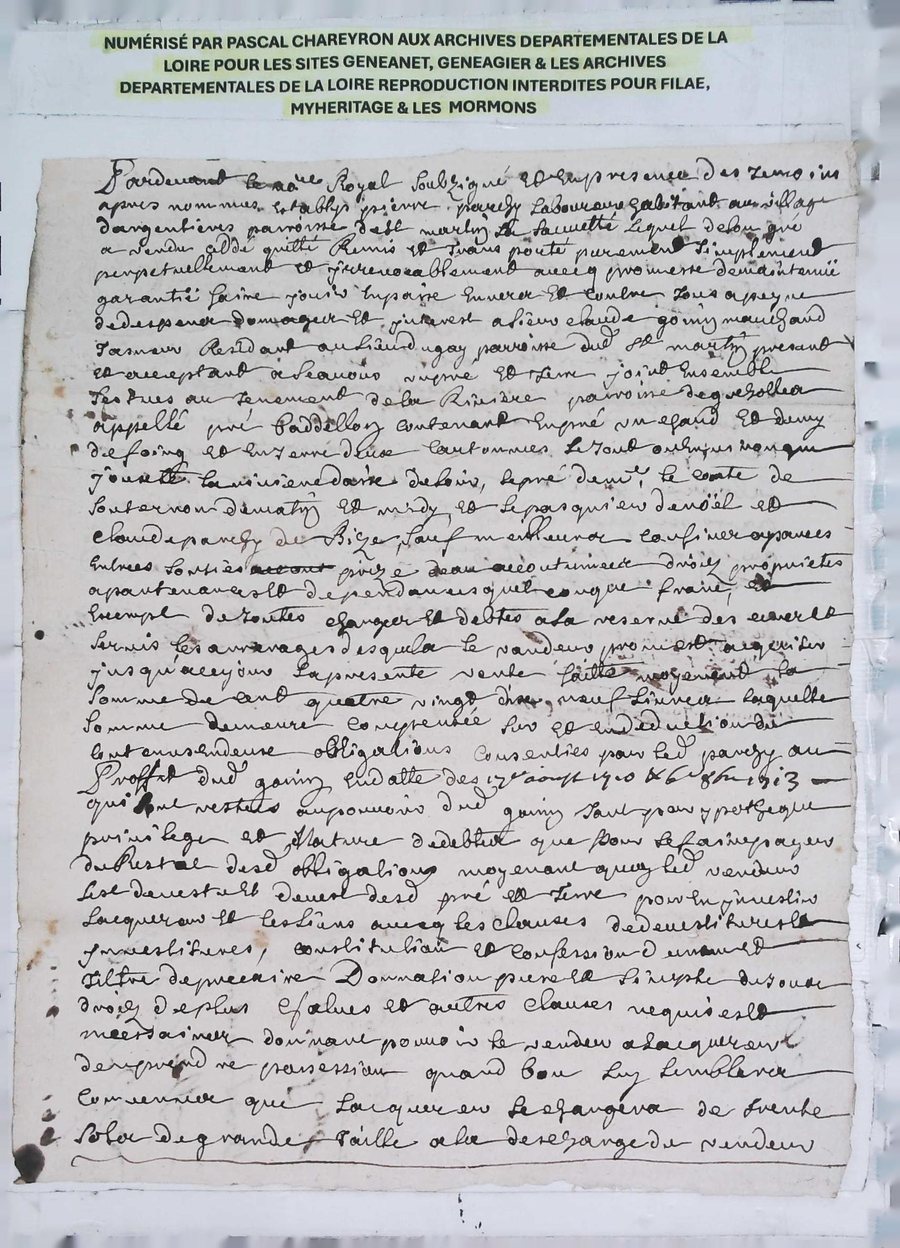 NUMÉRISÉ PAR PASCAL CHAREYRON AUX ARCHIVES DEPARTEMENTALES DE LA
LOIRE POUR LES SITES GENEANET, GENEAGIER & LES ARCHIVES
DEPARTEMENTALES DE LA LOIRE REPRODUCTION INTERDITES POUR FILAE,
MYHERITAGE & LES MORMONS
Pardevant le no.re Royal soubzigné et en presence des temoins
apres nommes establys pierre parchy laboureur habitant au village
dargentieres parroisse de st martin la sauvetté lequel de son gré
a vendu ceddé quitté Remis et transporté purement simplement
perpetuellement et jrrevocablement avecq promesse de maintenüe
garantié faire jouir en paix envers et contre tous a peyne
de despens domages et jnterest a sieur claude goiny marchand
tasneur Residant au lieu dugay parroisse dud. st martin present
et acceptant a scavoir un pré et terre joint ensemble
scitues au tenement de la Riviere parroisse de
appellé pré contenant en pré un chard et demy
de foing et en terre deux cartonnees le tout
jouxte la riviere daix de soir, le pré de mr. le comte de
souternon de matin et midy, et le pasquier de noël et
claude parchy de Bize, sauf meilleurs confines apances
entrees sorties prize deau accoutumees droits proprietes
apartenances et dependances quelconque franc, et
exempt de toutes charges et debtes a la reserve des cens et
servis les arrerages desquels le vendeur promet acquiter
jusqu'a ce jour la presente vente faitte moyenent la
somme de cent quatre vingt dix neuf livres laquelle
somme demeure comprensée sur et en deduction du
contenu en deux obligations consenties par led. parchy au
Proffit dud. goiny en datte des 17e aoust 1710 & 6e 8bre 1713
qui restés au pouvoir dud. goiny tant par ypotheque
privilege et nature de debtes que pour se faire payer
du Restat desd. obligations moyenant quoy led. vendeur
sest devestu et devest desd. pré et terre pour en jnvestir
lacquereur et les siens avecq les clauses de devestitures et
jnvestitures, constitution et confession
tiltre de precaire Donnation pure et simple du tout
droits de plus values et autres clauses requises et
necessaires donnant pouvoir le vendeur a lacquereur
den prendre possession quand bon luy semblera
convenu que lacquereur se chargera de trente
sols de grande taille a la descharge du vendeur